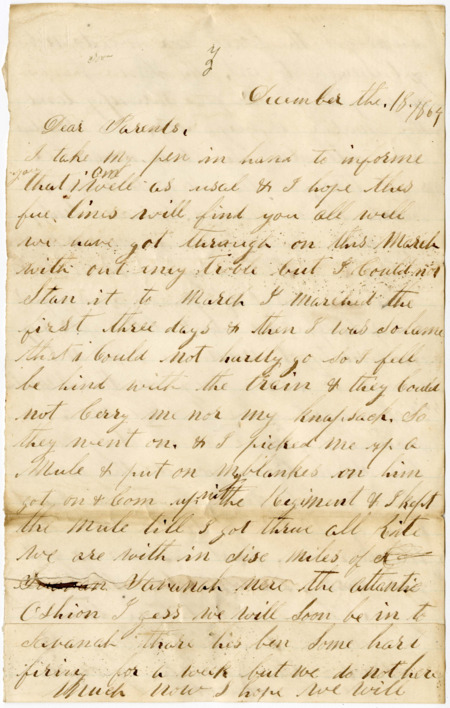 3
December the. 18. 1864
Dear Parents,
I take my pen in hand to informe
you that i am well as usual & I hope thes
fue lines will find you all well
we have got through on this March
with out iney troble but I Could not
Stan it to March I Marchet the
first three days & then I was so lame
that i Could not hardly go so I fell
be hind with the train & they Could
not Cerry me nor my knapsack. So
they went on. & I picked me up a
Mule & put on blankes on him
got on & Com up with the Regiment & I kept
the Mule till I got threw all
We are with in sise miles of
Savanah nere the atlantic
Oshion I gess we will soon be in to
Savanah thare his ben some hard
firing for a week but we do not here
Much now I hope we will